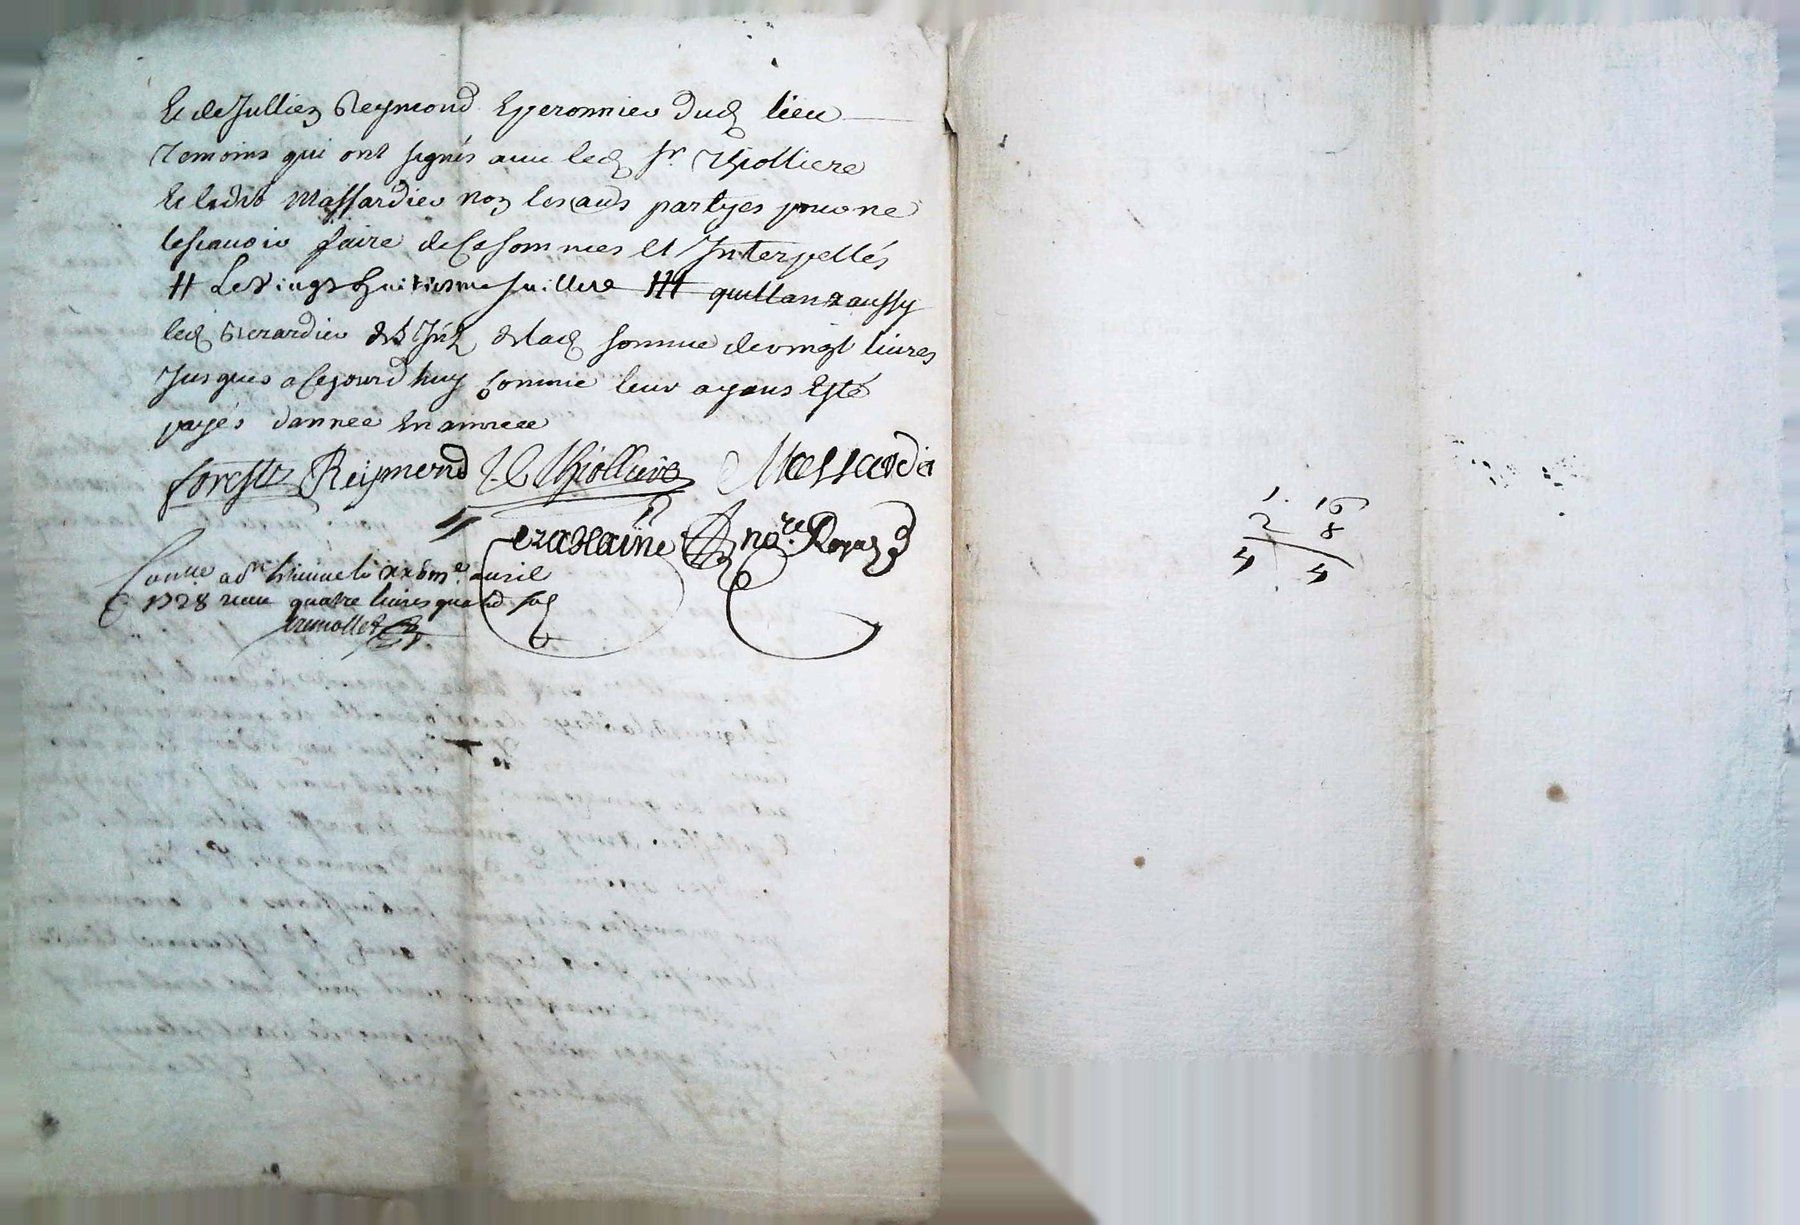 Et de Jullien Reymond Esperonnier dud lieu
Temoins qui ont signés avec led Sr Thiolliere
Et ledit Massardier non les auts partyes pour ne
le scavoir faire de ce sommes et Interpellés
# Le vingt huitieme Juillere ### quittanc aussy
led Verardier de lad somme de vingt livres
Jusques a cejourd'huy comme leur ayant Esté
payés d'année En année
forest Reymond Thiolliere Massardie
Nore Royal
Conlle a St Estienne le avril
1728 receu quatre livres quatre sols
1. 16
2 8
4 4